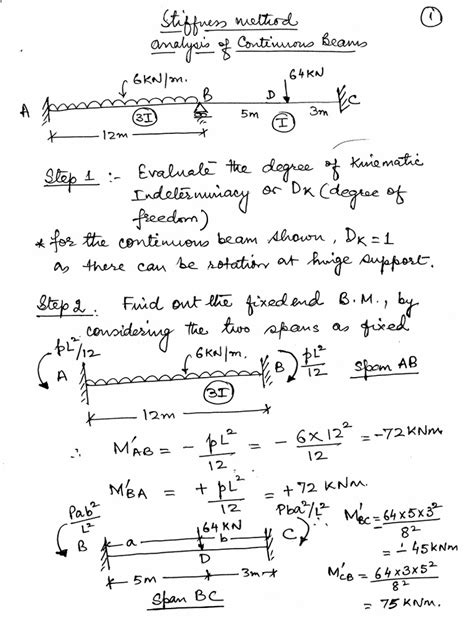 Stiffness method
analysis of Continuous Beams
1
6KN/m.
64KN
A
B
D
C
3I
5m
I
3m
12m
Step 1 :- Evaluate the degree of Kinematic
Indeterminacy or DK (degree of
freedom)
* for the continuous beam shown, DK = 1
as there can be rotation at hinge support.
Step 2. Find out the fixed end B.M., by
considering the two spans as fixed
pL²/12
6KN/m.
pL²/12
A
B
Span AB
3I
12m
∴ M'AB = - pL²/12 = - 6×12²/12 = -72KNm.
M'BA = + pL²/12 = +72 KNm.
Pab²/L²
64KN
Pba²/L²
∴ M'BC = 64×5×3²/8²
B
a
b
C
D
= - 45KNm
5m
3m
M'CB = 64×3×5²/8²
Span BC
= 75 KNm.